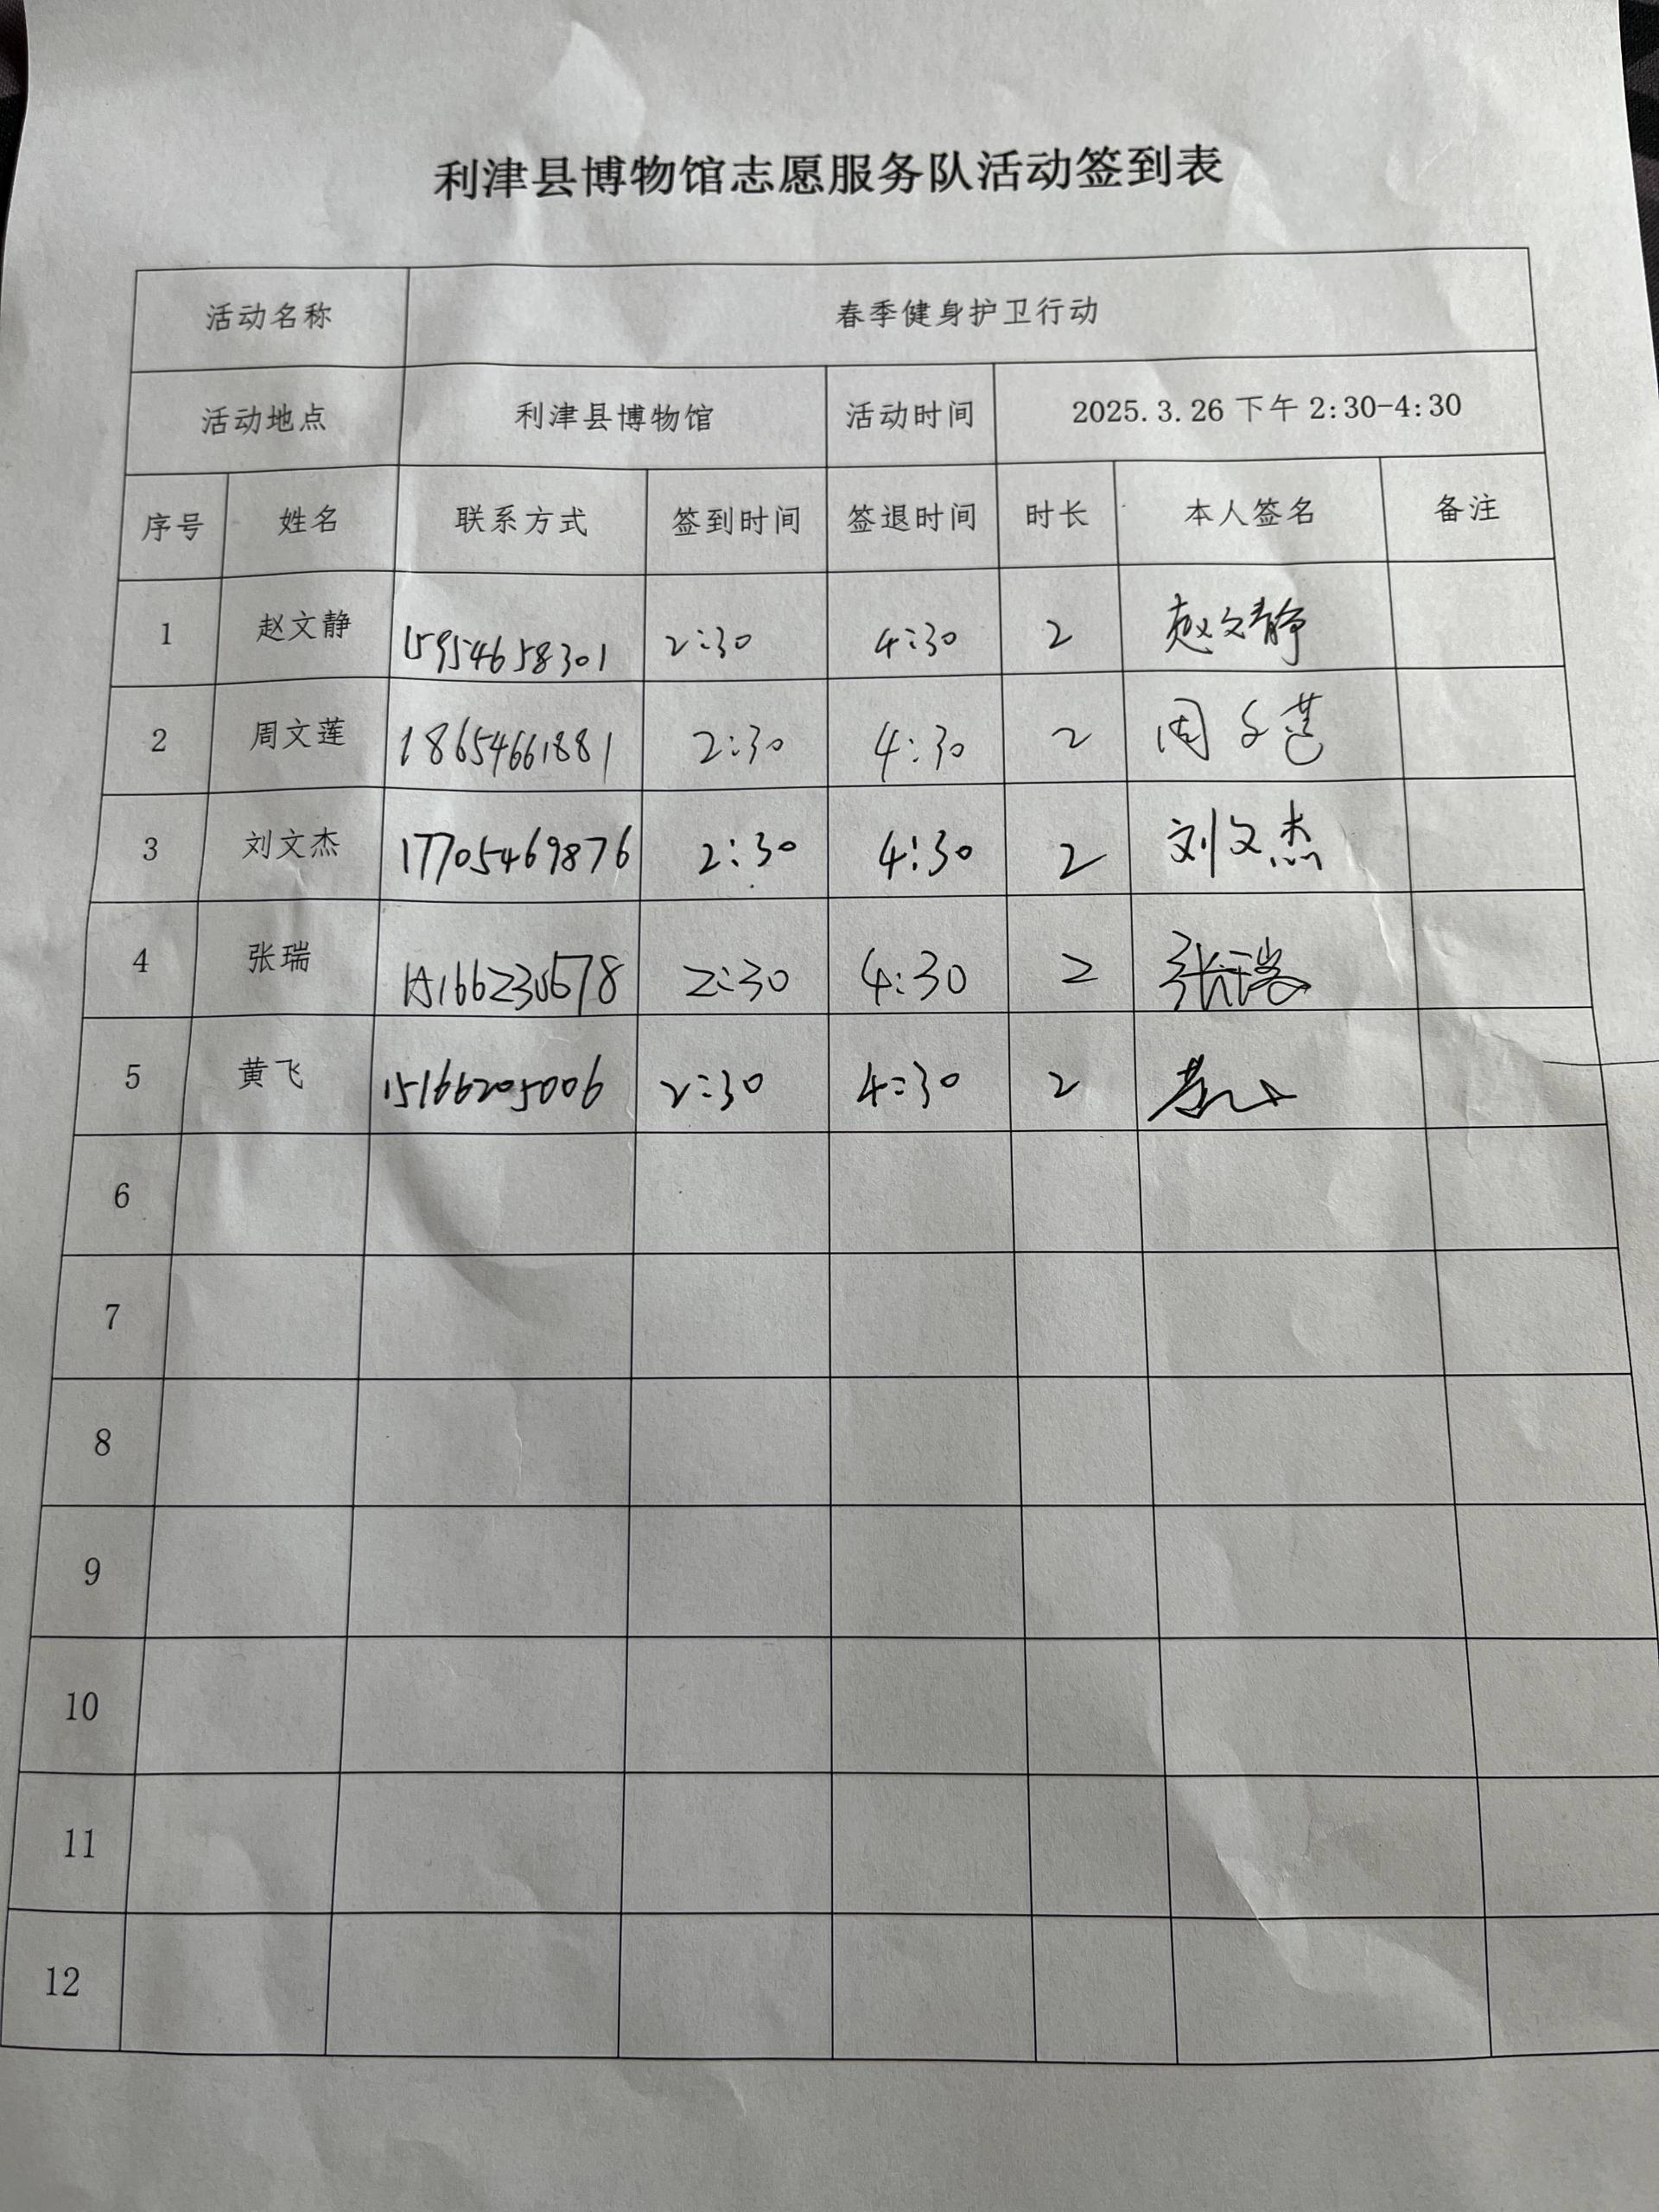 利津县博物馆志愿服务队活动签到表
活动名称 春季健身护卫行动
活动地点 利津县博物馆 活动时间 2025.3.26 下午 2:30-4:30
序号 姓名 联系方式 签到时间 签退时间 时长 本人签名 备注
1 赵文静 15954658301 2:30 4:30 2 赵文静
2 周文莲 18654661881 2:30 4:30 2 周文莲
3 刘文杰 17705469876 2:30 4:30 2 刘文杰
4 张瑞 2:30 4:30 2 张瑞
5 黄飞 15166205006 2:30 4:30 2
6
7
8
9
10
11
12